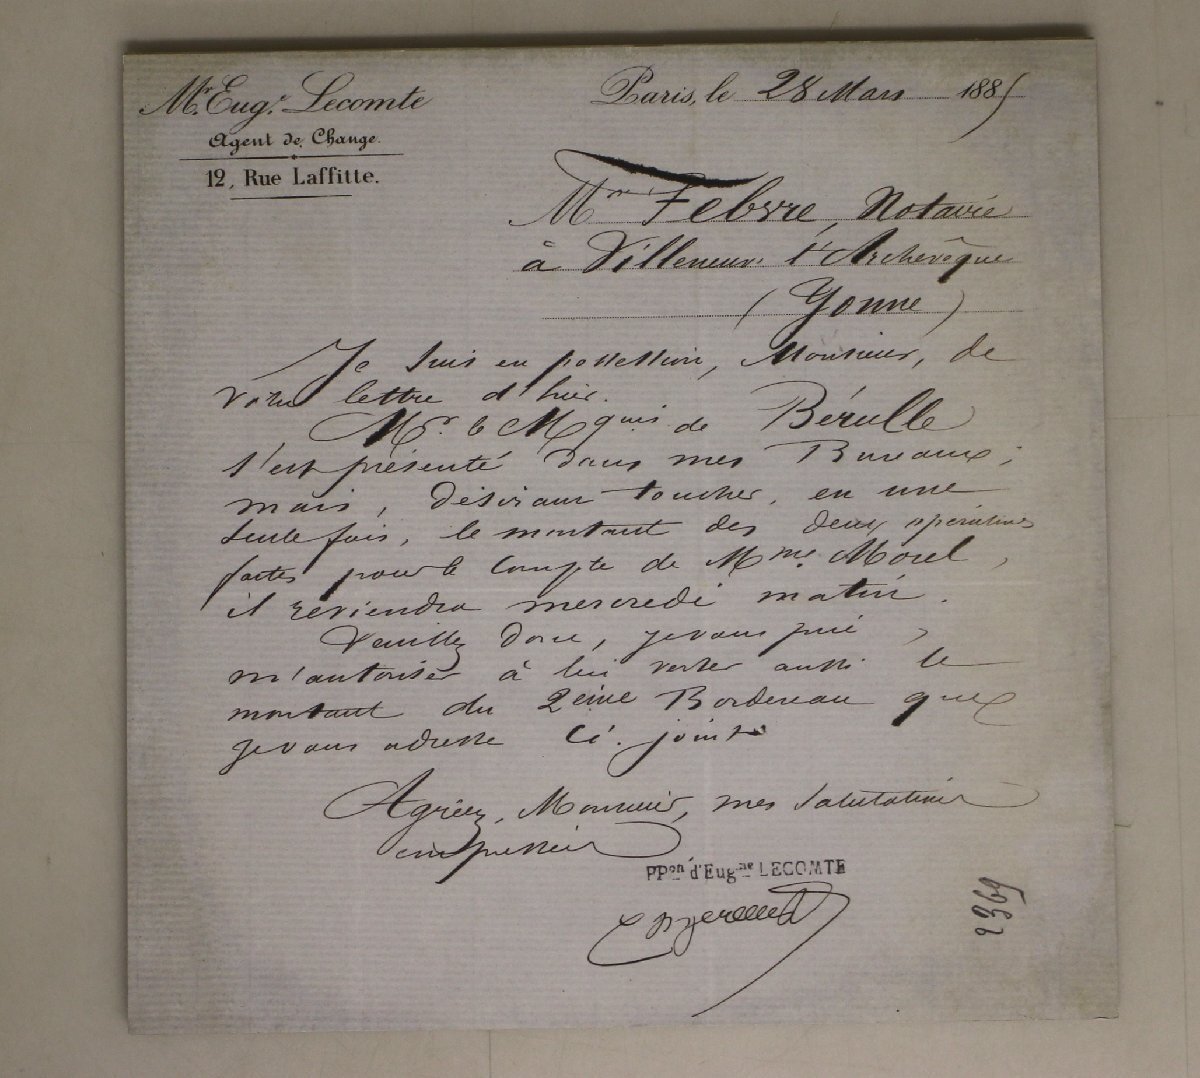 Mr. Eugе. Lecomte
Agent de Change.
12, Rue Laffitte.
Paris, le 28 Mars 1885
Mr Febvre, Notaire
à Villeneuve l'Archevêque
(Yonne)
Je suis en possession, Monsieur, de
votre lettre d'hier.
Mr. le Mquis de Bérulle
s'est présenté dans mes Bureaux;
mais, désirant toucher, en une
seule fois, le montant des deux opérations
faites pour le compte de Mme. Morel,
il reviendra mercredi matin.
Veuillez donc, je vous prie,
m'autoriser à lui verser aussi le
montant du 2eme Bordereau que
je vous adresse ci-joint.
Agréez, Monsieur, mes salutations
empressées
PPon d'Eugne LECOMTE
2369